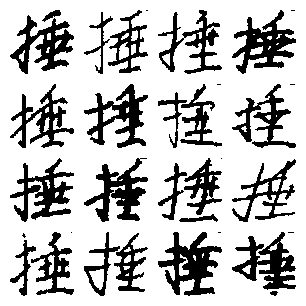 捶捶捶捶
捶捶捶捶
捶捶捶捶
捶捶捶捶